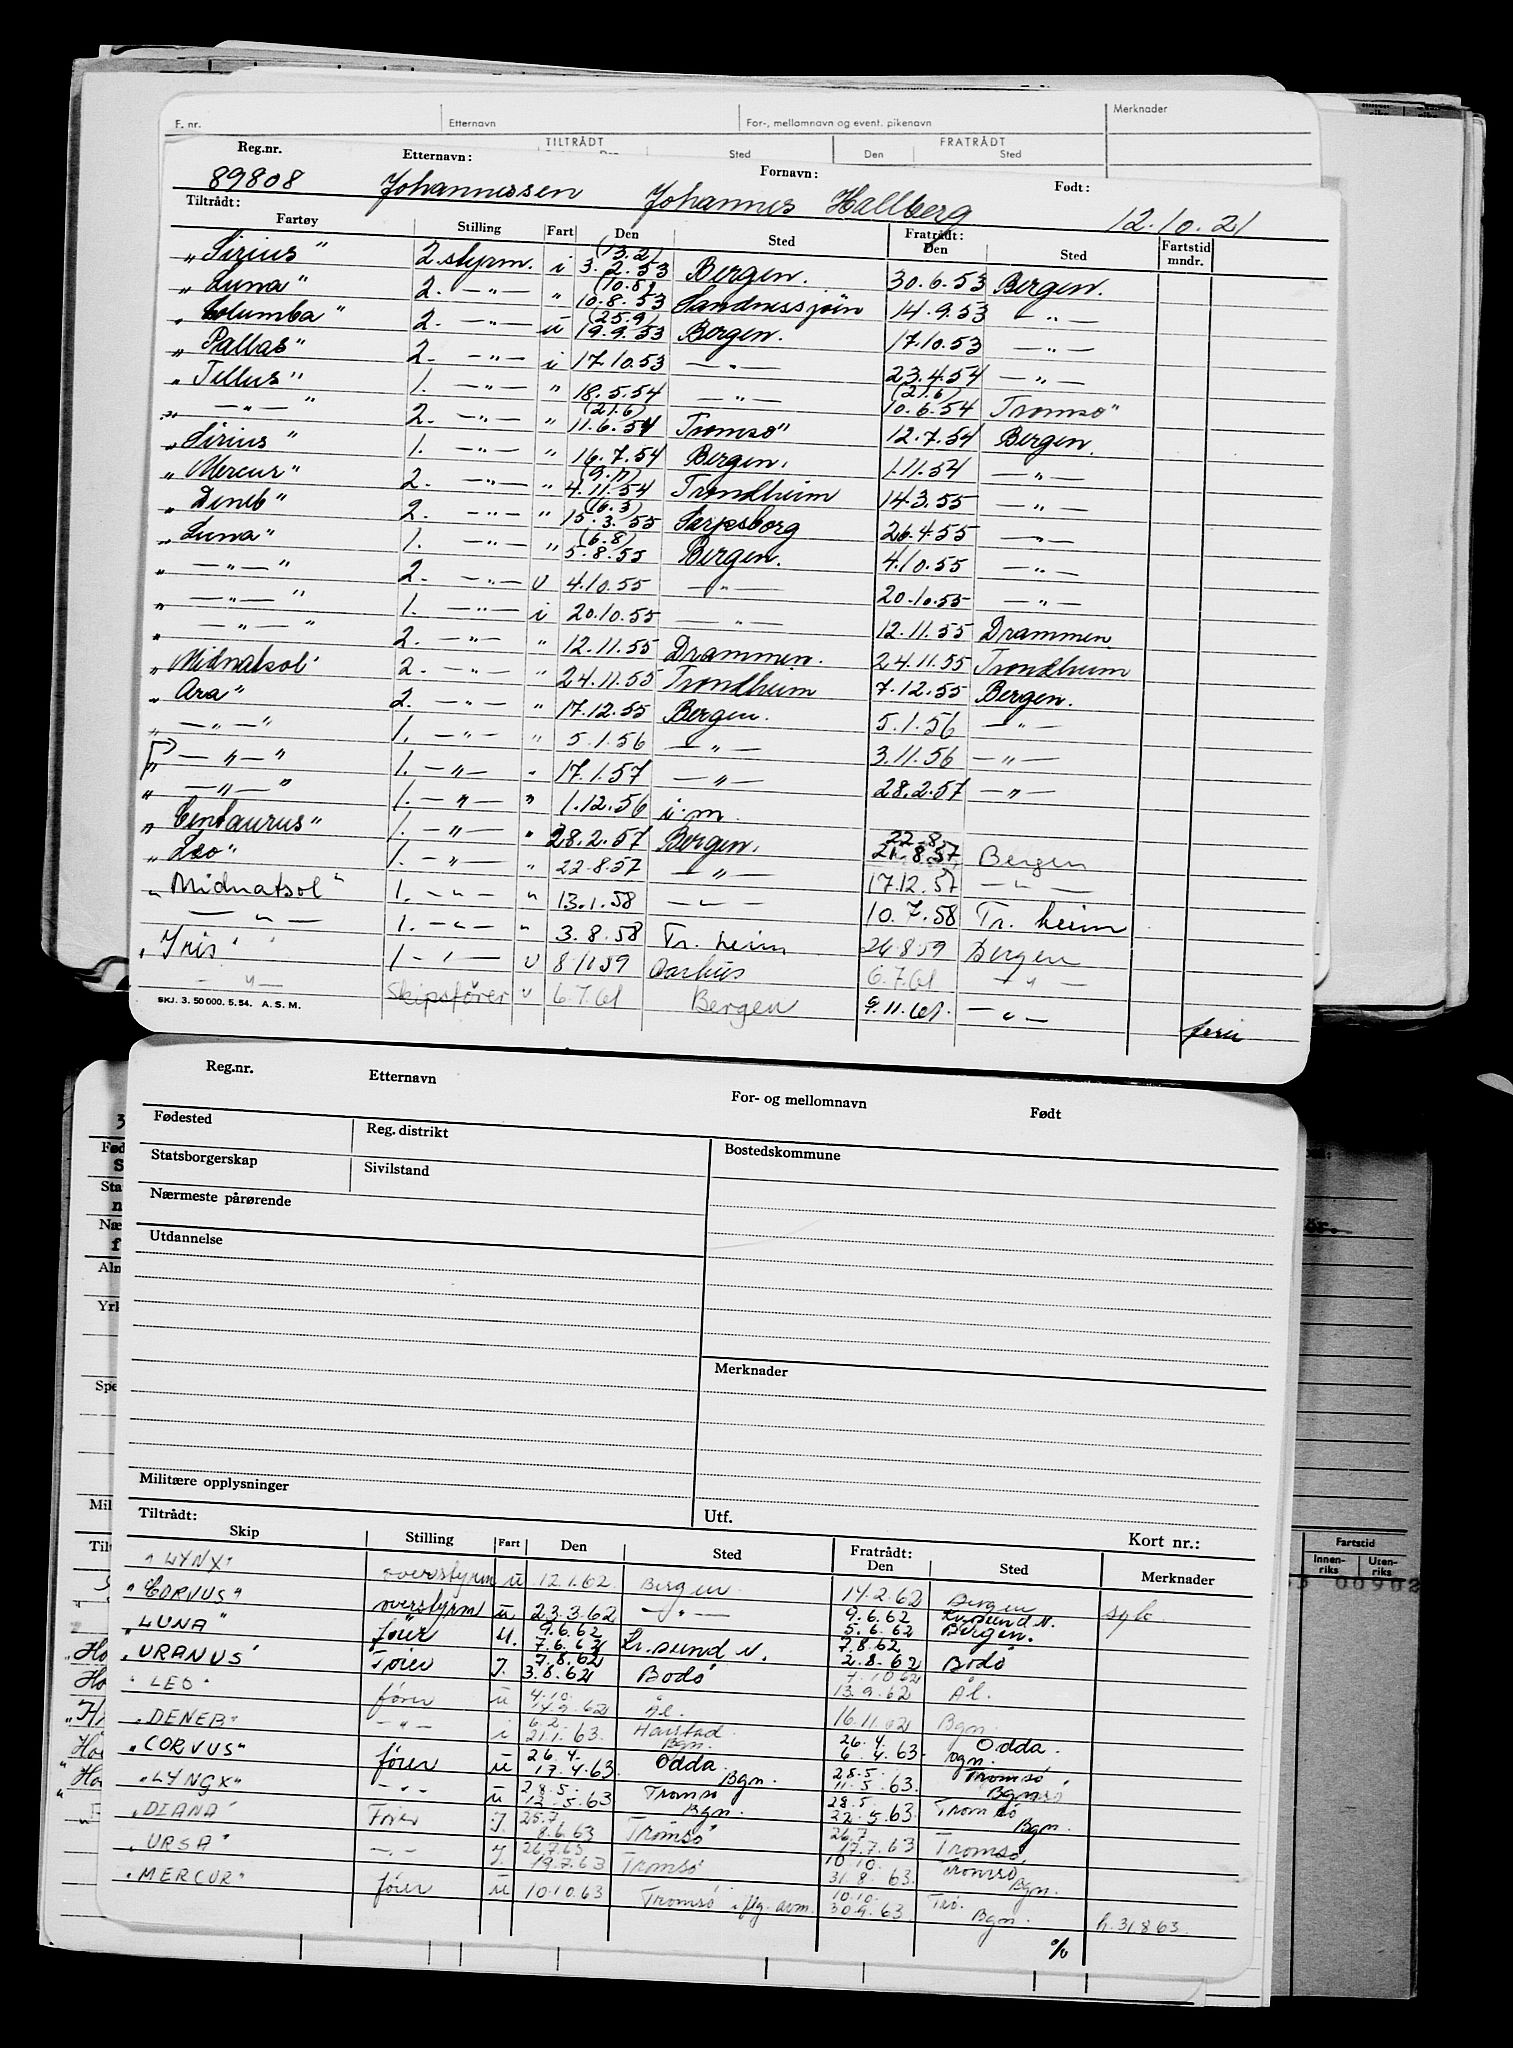 F. nr. Etternavn For-, mellomnavn og event. pikenavn Merknader
TILTRÅDT FRATRÅDT
Sted Den Sted
Reg.nr. Etternavn: Fornavn: Født:
89808 Johannessen Johannes Hallberg 12.10.21
Tiltrådt: Fratrådt:
Fartøy Stilling Fart Den Sted Den Sted Fartstid mndr.
„Sirius" 2. styrm. i (13.2) 3.2.53 Bergen. 30.6.53 Bergen.
„Luna" 2. —"— " (10.8) 10.8.53 Sandnessjöen 14.9.53 —"—
„Columba" 2. —"— u (25.9) 19.9.53 Bergen. 17.10.53 —"—
„Pallas" 2. —"— i 17.10.53 —"— 23.4.54 —"—
„Tellus" 1. —"— " 18.5.54 —"— (21.6) 10.6.54 Tromsö"
„—"—" 2. —"— " (21.6) 11.6.54 Tromsö" 12.7.54 Bergen.
„Sirius" 1. —"— " 16.7.54 Bergen. 1.11.54 —"—
„Mercur" 2. —"— " (9.11) 4.11.54 Trondheim 14.3.55 —"—
„Deneb" 2. —"— " (16.3) 15.3.55 Sarpsborg 26.4.55 —"—
„Luna" 1. —"— " (6.8) 5.8.55 Bergen. 4.10.55 —"—
„—"—" 2. —"— u 4.10.55 —"— 20.10.55 —"—
„—"—" 1. —"— i 20.10.55 —"— 12.11.55 Drammen.
„—"—" 2. —"— " 12.11.55 Drammen. 24.11.55 Trondheim
„Midnatsol" 2. —"— " 24.11.55 Trondheim 7.12.55 Bergen.
„Ara" 2. —"— " 17.12.55 Bergen. 5.1.56 —"—
„—"—" 1. —"— " 5.1.56 —"— 3.11.56 —"—
„—"—" 1. —"— " 17.1.57 —"— 28.2.57 —"—
„—"—" 1. —"— " 1.12.56 i.m.
„Centaurus" 1. —"— " 28.2.57 Bergen. 22.8. 21.8.57 Bergen
„Leo" 1. —"— " 22.8.57 —"— 17.12.57 —"—
„Midnatsol" 1. —"— " 13.1.58 —"— 10.7.58 Tr. heim
—"— 1. —"— " 3.8.58 Tr. heim 26.8.59 Bergen
„Iris" 1 —"— u 8.11.59 Aarhus 6.7.61 —"—
—"— Skipsfører u 6.7.61 Bergen 9.11.61. —"— ferie
SKJ. 3. 50 000. 5. 54. A. S. M.
Reg.nr. Etternavn For- og mellomnavn Født
Fødested Reg. distrikt Bostedskommune
Statsborgerskap Sivilstand
Nærmeste pårørende
Utdannelse
Merknader
Militære opplysninger
Utf. Kort nr.:
Tiltrådt: Fratrådt:
Skip Stilling Fart Den Sted Den Sted Merknader
"LYNX" overstyrm u 12.1.62 Bergen 14.2.62 Bergen syk
"CORVUS" overstyrm u 23.3.62 —"— 9.6.62 5.6.62 Kr.sund N. Bergen.
"LUNA" fører u. 9.6.62 7.6.62 Kr. sund N. 7.8.62 2.8.62 Bodö
"URANUS" Fører J. 7.8.62 3.8.62 Bodö 13.9.62 Ål.
"LEO" fører u 4.10. 14.9.62 Ål. 16.11.62 Bgn.
"DENEB" —"— i 6.2. 21.1.63. Harstad Bgn. 26.4. 6.4.63. Odda. Bgn.
"CORVUS" fører u 26.4. 17.4.63. Odda Bgn. 28.5. 11.5.63. Tromsö Bgn
"LYNGX" —"— u 28.5. 12.5.63 Tromsö Bgn. 28.5. 22.5.63. Tromsö Bgn.
"DIANA" Fører J. 25.7 8.6.63 Tromsö 26.7 17.7.63 Tromsö
"URSA" —"— J. 26.7.63 19.7.63 Tromsö 10.10. 31.8.63. Tromsö Bgn.
"MERCUR" fører u 10.10.63 Tromsø i flg. avm. 10.10. 30.9.63 Trö. Bgn. h. 31.8.63.
%
Fartstid
Innenriks Utenriks
00902